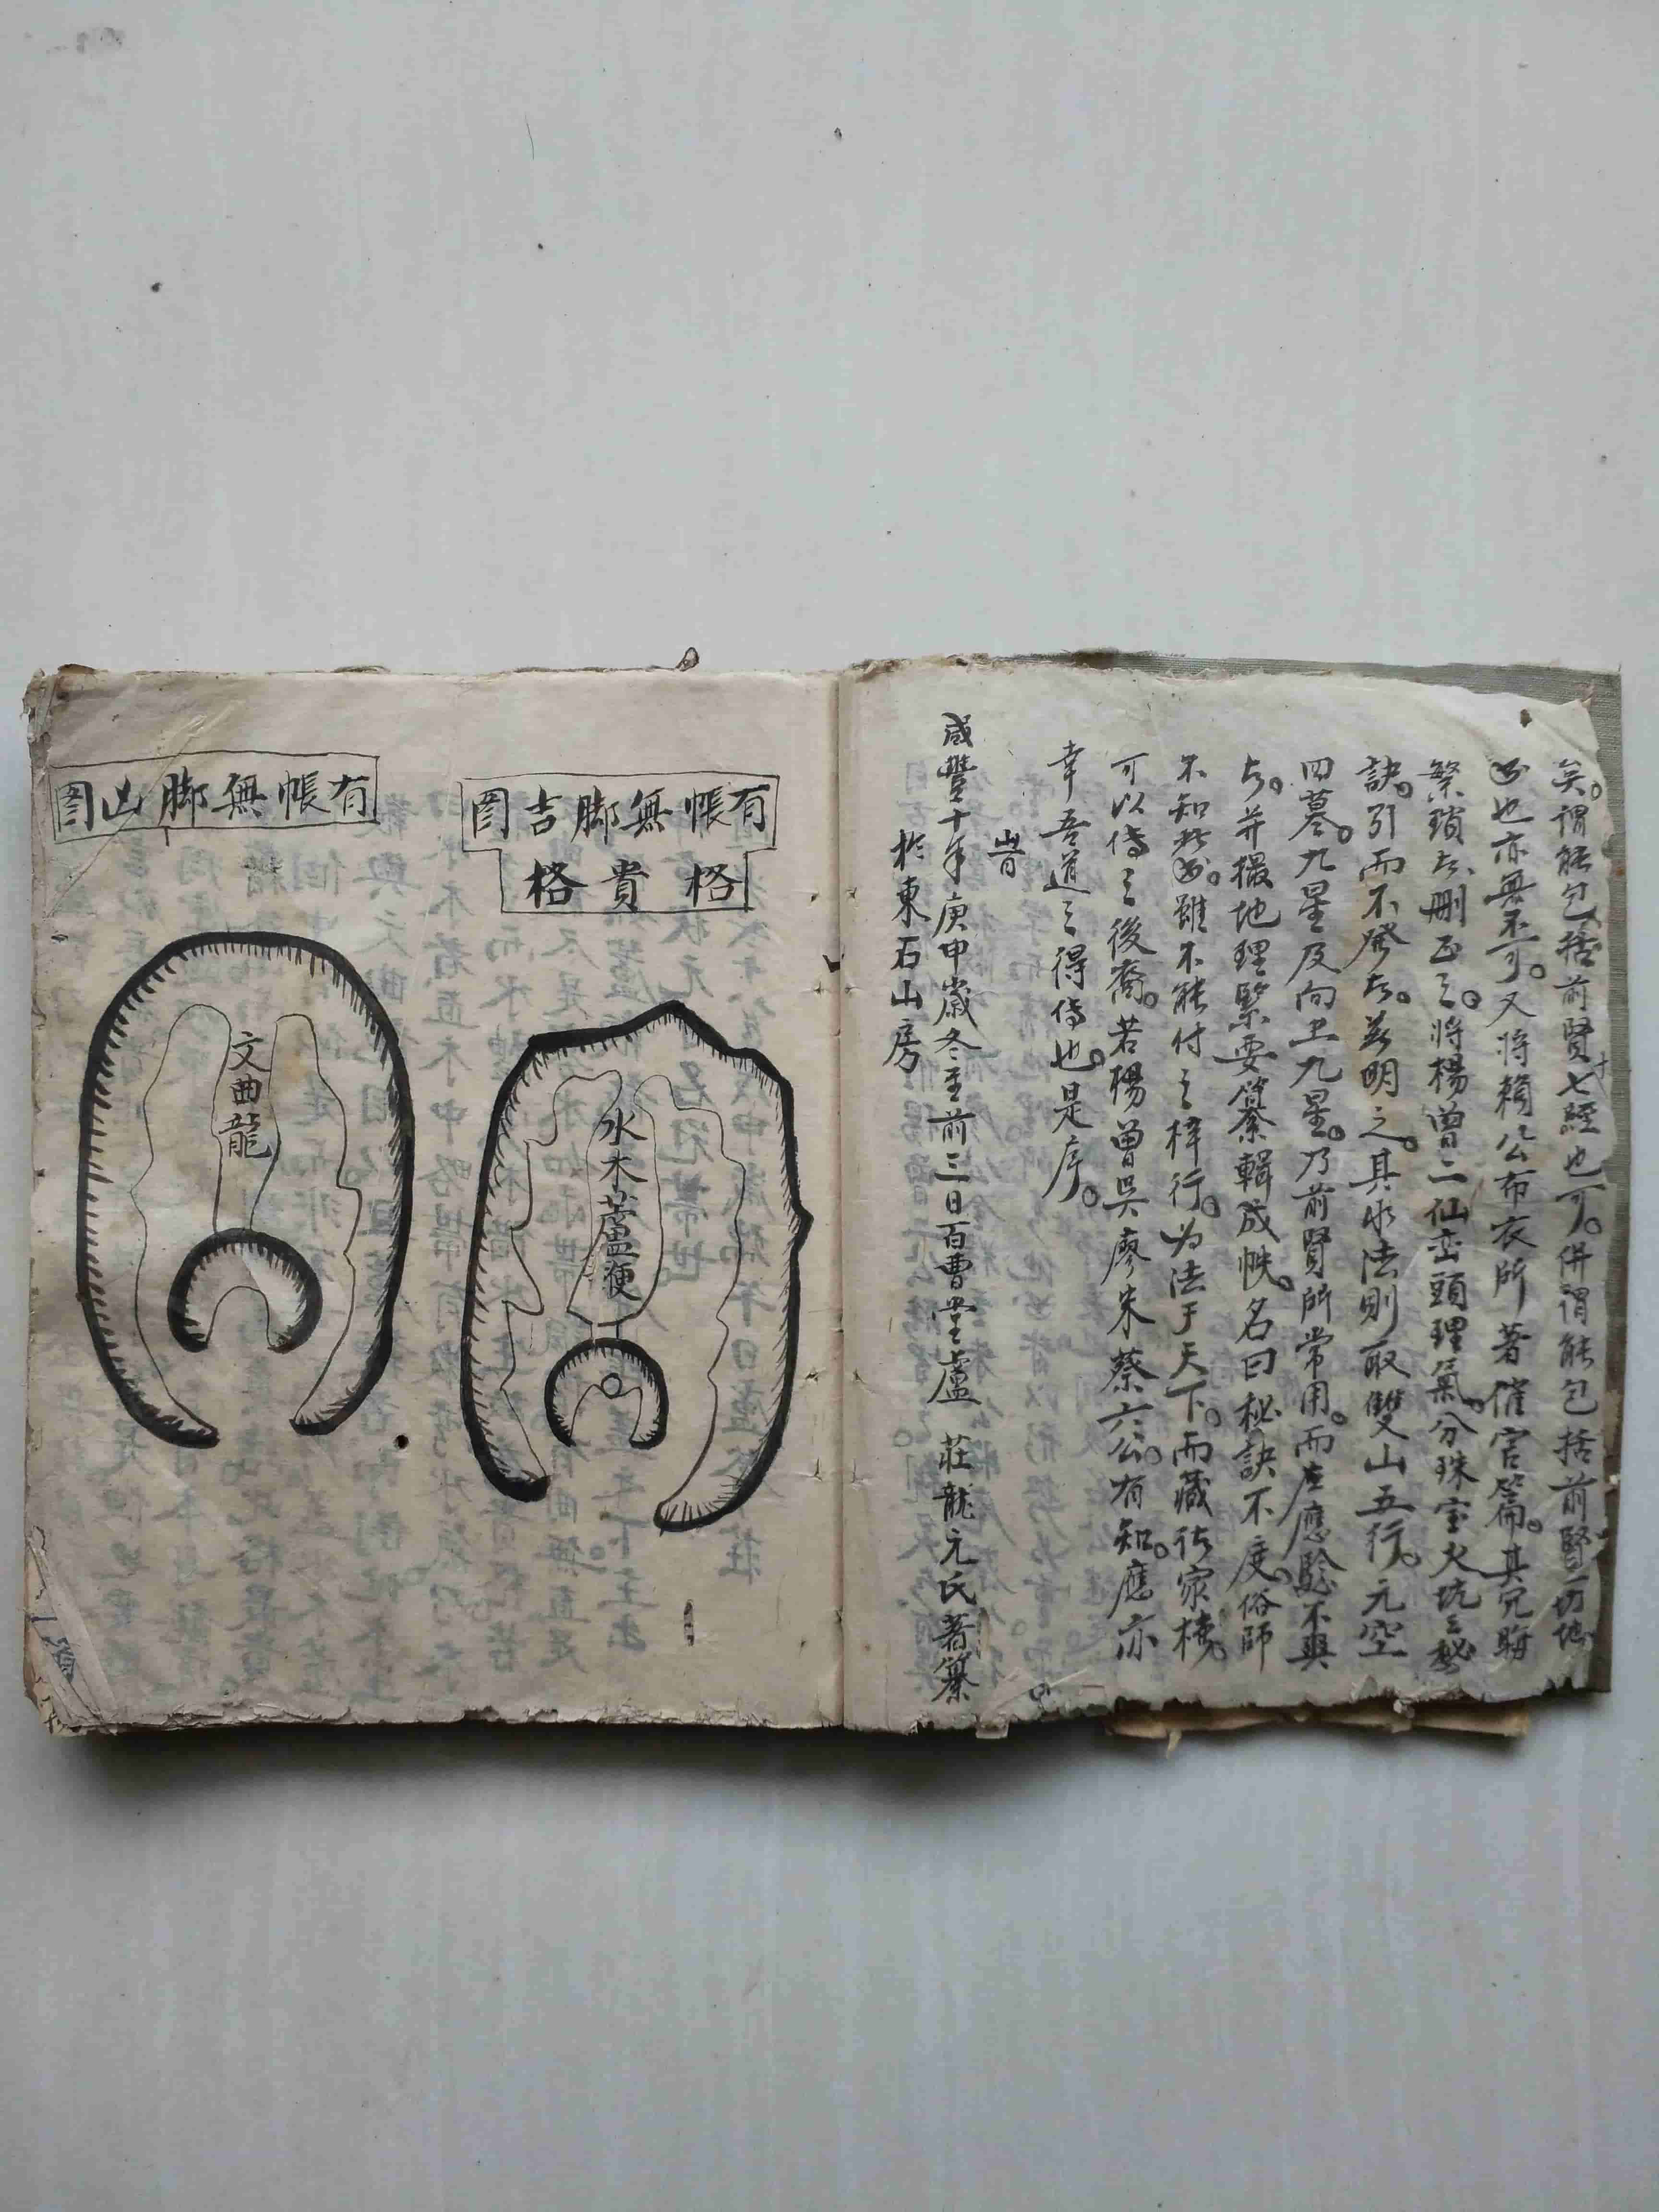 矣。謂能包括前賢七經也可。併謂能包括前賢一切地
也亦無不可。又將賴公布衣所著催官篇。其冗
繁瑣者刪正之。將楊曾二仙巒頭理氣。分珠宝火坑之秘
訣。引而不發者。茲明之。其水法則取雙山五行。元空
四墓。九星及向上九星。乃前賢所常用。而座應驗不與
者。并撮地理緊要纂輯成帙。名曰秘訣不度。俗師
不知此。雖不能付之梓行。为法于天下。而藏於家
可以傳之後裔。若楊曾吳廖朱蔡六公。有知。應亦
幸吾道之得傳也。是序。
峕
咸豐十年庚申歲冬至前三日百曹堂盧 莊龍元氏著纂
於東石山房
有帳無脚吉圖
格貴格
水木蘆鞭
有帳無脚凶圖
文曲龍